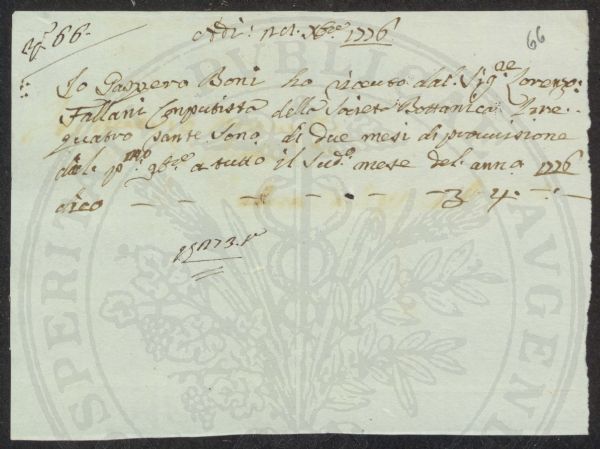 66
N° 66.
Adi: Xbre 1776
Io Gaspero Boni ho riceuto dal: Sig:re Lorenzo:
Fallani Conputista della Società Bottanica: lire
quatro tante sono di due mesi di provvisione
dal: p:mo 9bre a tutto il sud:o mese del: anno 1776
dico — — — — — — — 4. — : —
PUBLICAE
PROSPERITATI
AUGEN